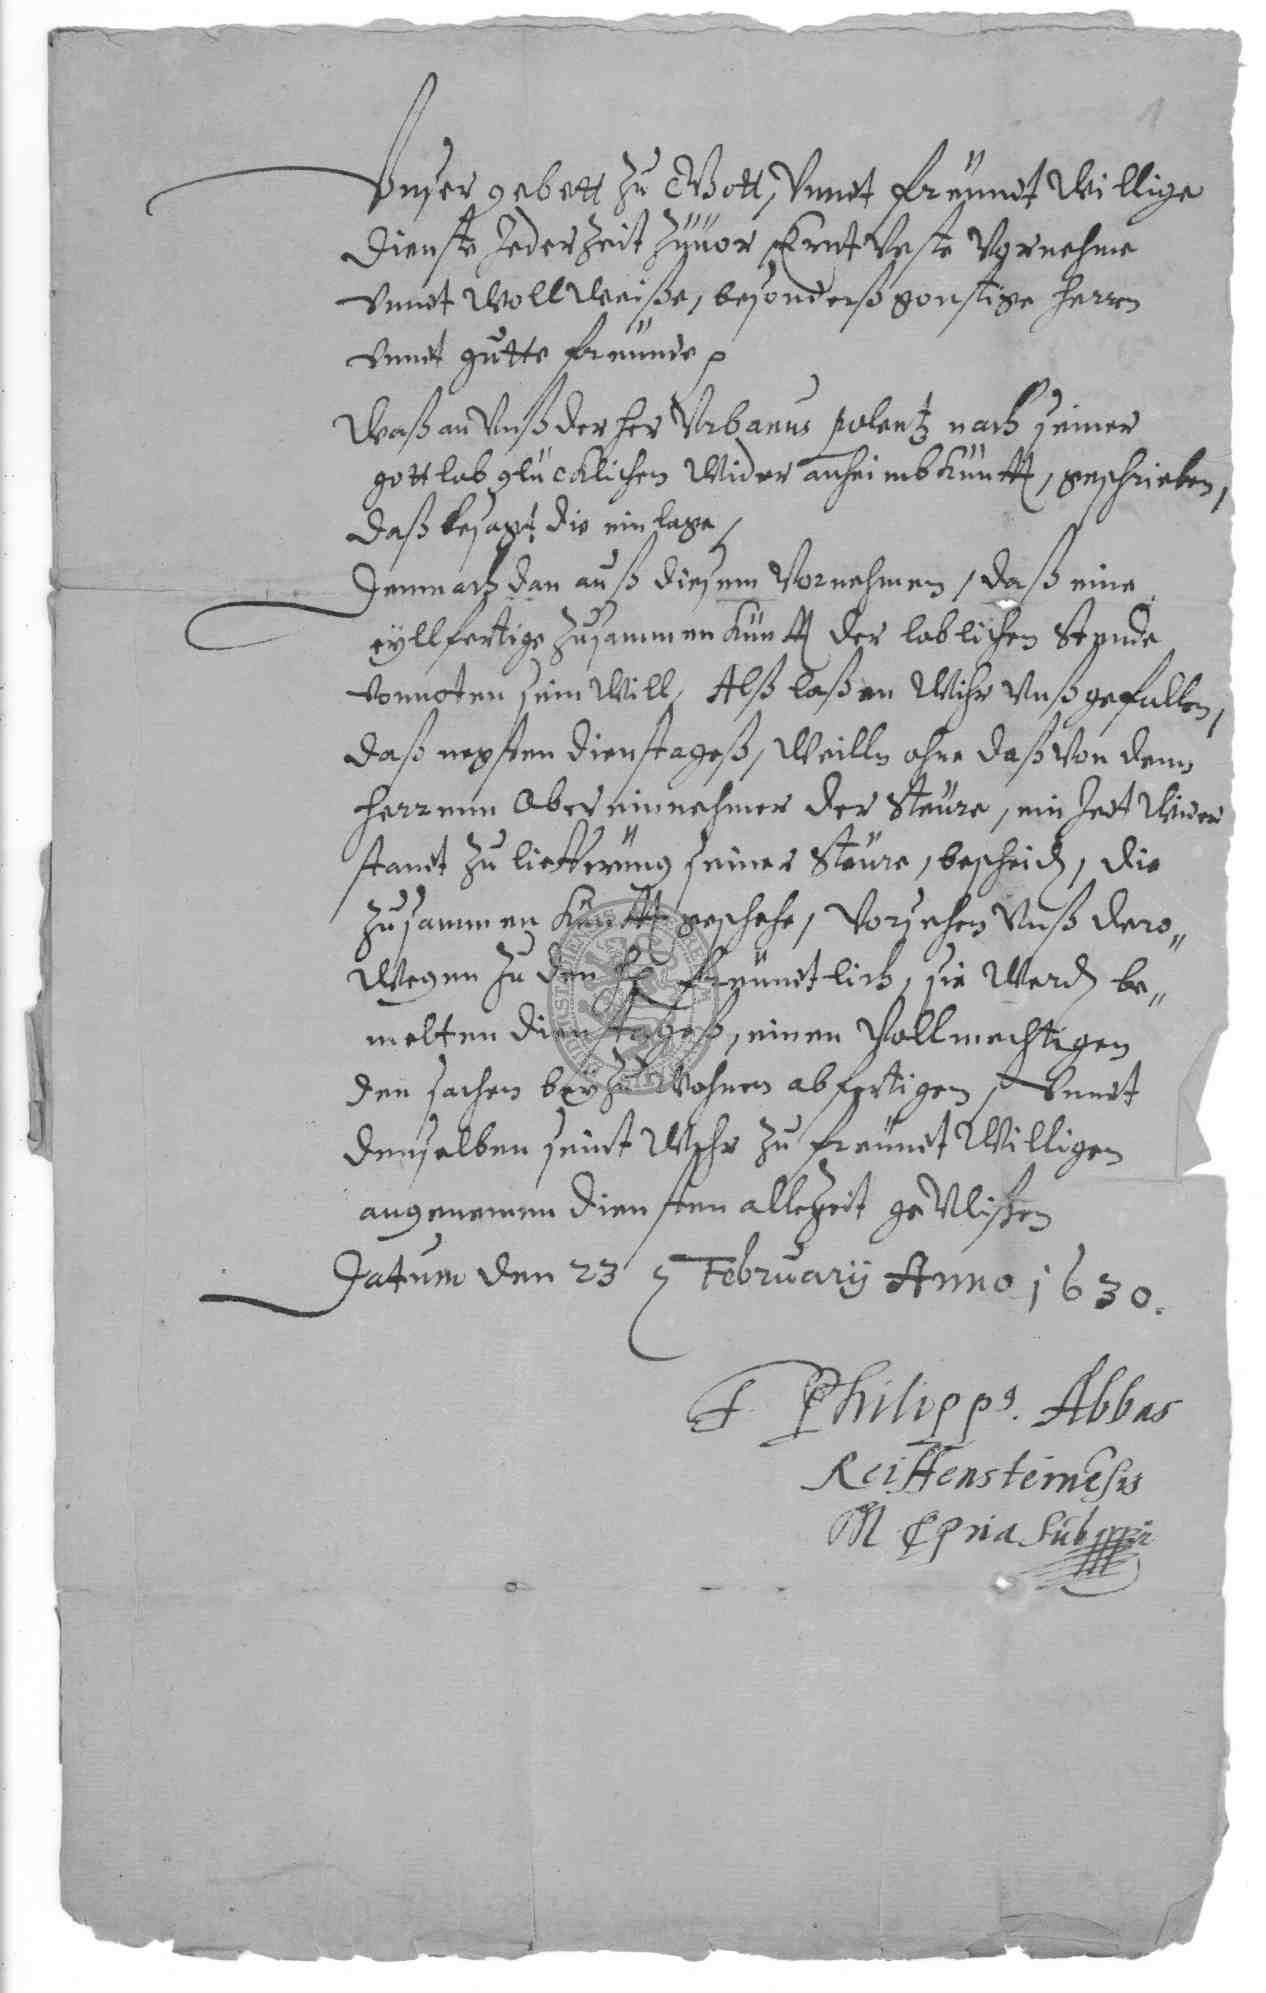 1
Vnser gebett zu Gott, Vnndt freündt Willige
dienste Jeder Zeit Züüor Ernt Veste Vornehme
Vnndt Wollweiße, besonderß gonstige herren
Vnndt gutte freünde
Waß an Vnß der her Vrbanus polentz nach seiner
gott lob glücklichen Wider anheimbkünfft, geschrieben,
daß besagt die einlage,
Demnach dan auß diesem Vornehmen, daß eine
eyllfertige Zusammenkünfft der loblichen Stende
Vonnoten sein Will, Alß laßen Wihr Vnß gefallen,
daß negsten dienstageß, Weilln ohne daß Von denn
herrenn Obereinnehmer der Steüre, ein Jedt Wider
standt zu liefferüng seiner Steüre, bescheid, die
Zusammen Künfft geschehe, Vorsehen Vnß dero„
Wegen zu den freündtlich, sie Werd be„
melten dienstageß, einen Vollmechtigen
den sachen beyzuwohnen abfertigen, Vnndt
denselben seint Wyhr zu freündt Willigen
angenemen diensten allezeit geVlißen
Datum den 23 Februarij Anno 1630.
F Philipp9. Abbas
Reiffensteinesis
M ppria Sub